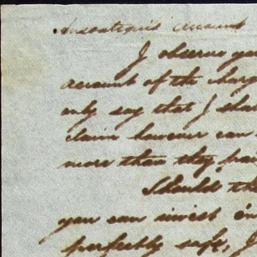 account
I observe you
account of the charg
only say that I shou
claim however can
more than they pai
Should the
you can invest in
perfectly safe, I